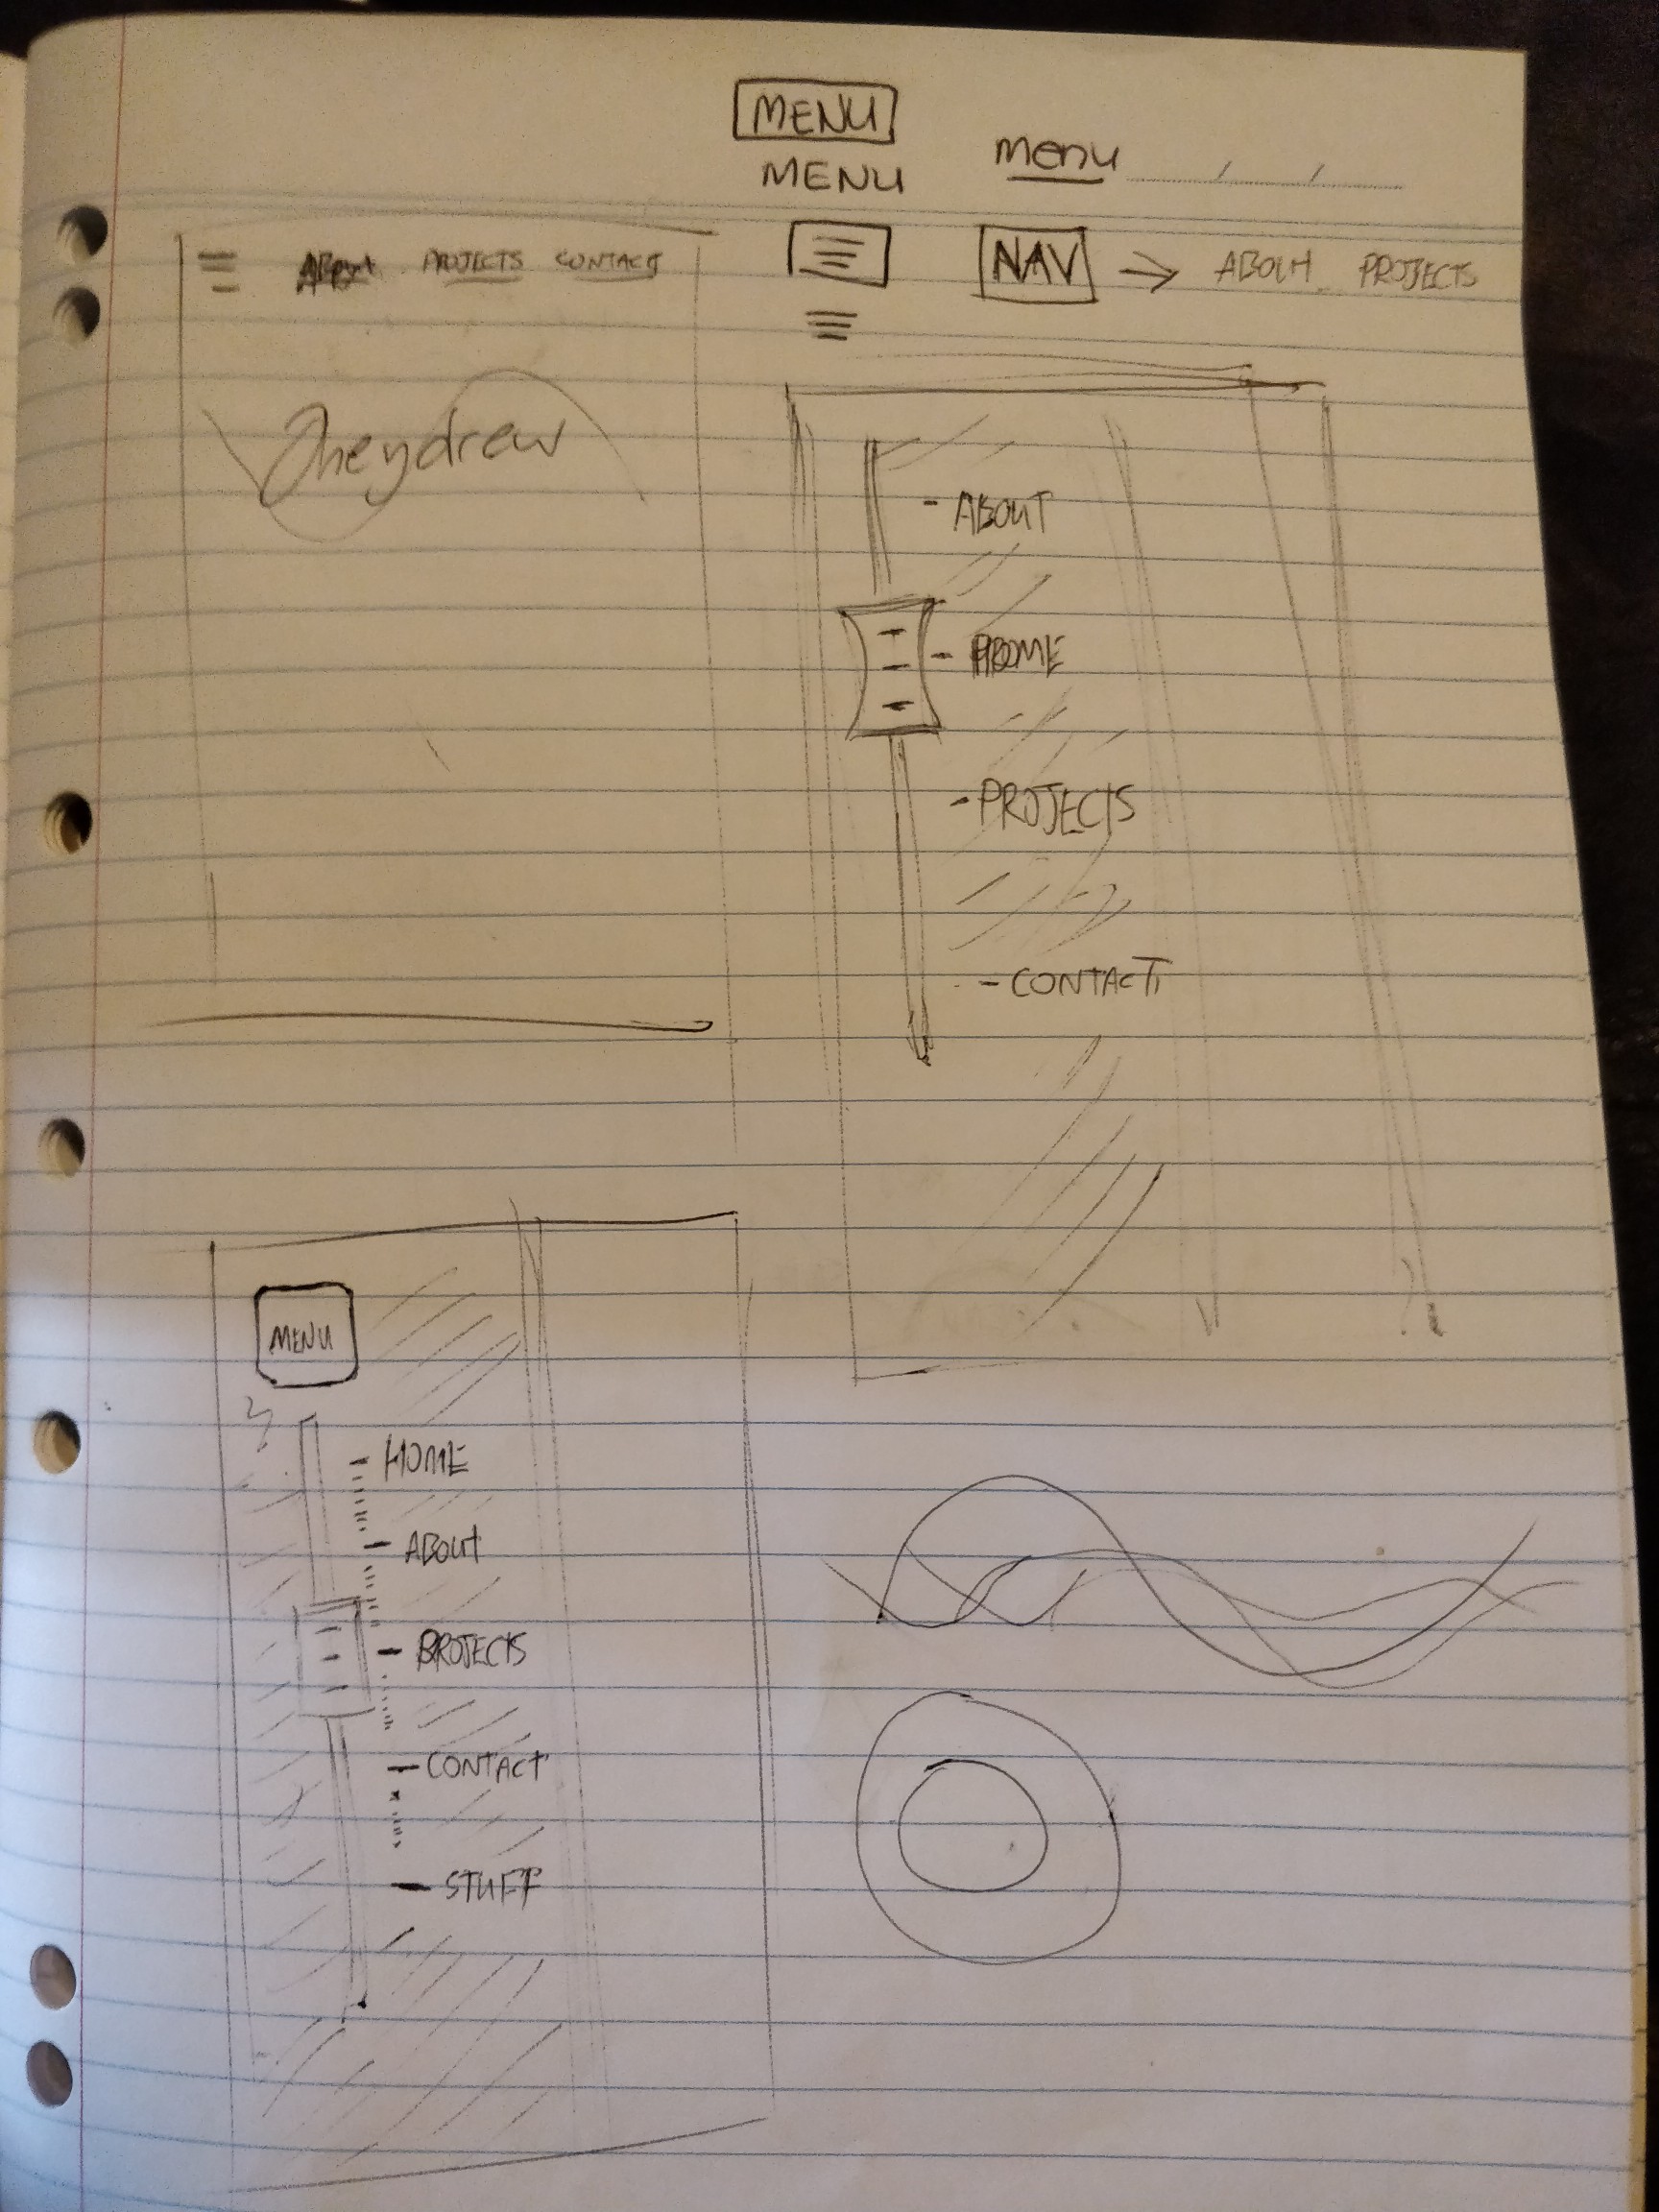 MENU
MENU
menu
NAV → ABOUT PROJECTS
ABOUT PROJECTS CONTACT
- ABOUT
- HOME
- PROJECTS
- CONTACT
MENU
- HOME
- ABOUT
- PROJECTS
- CONTACT
- STUFF